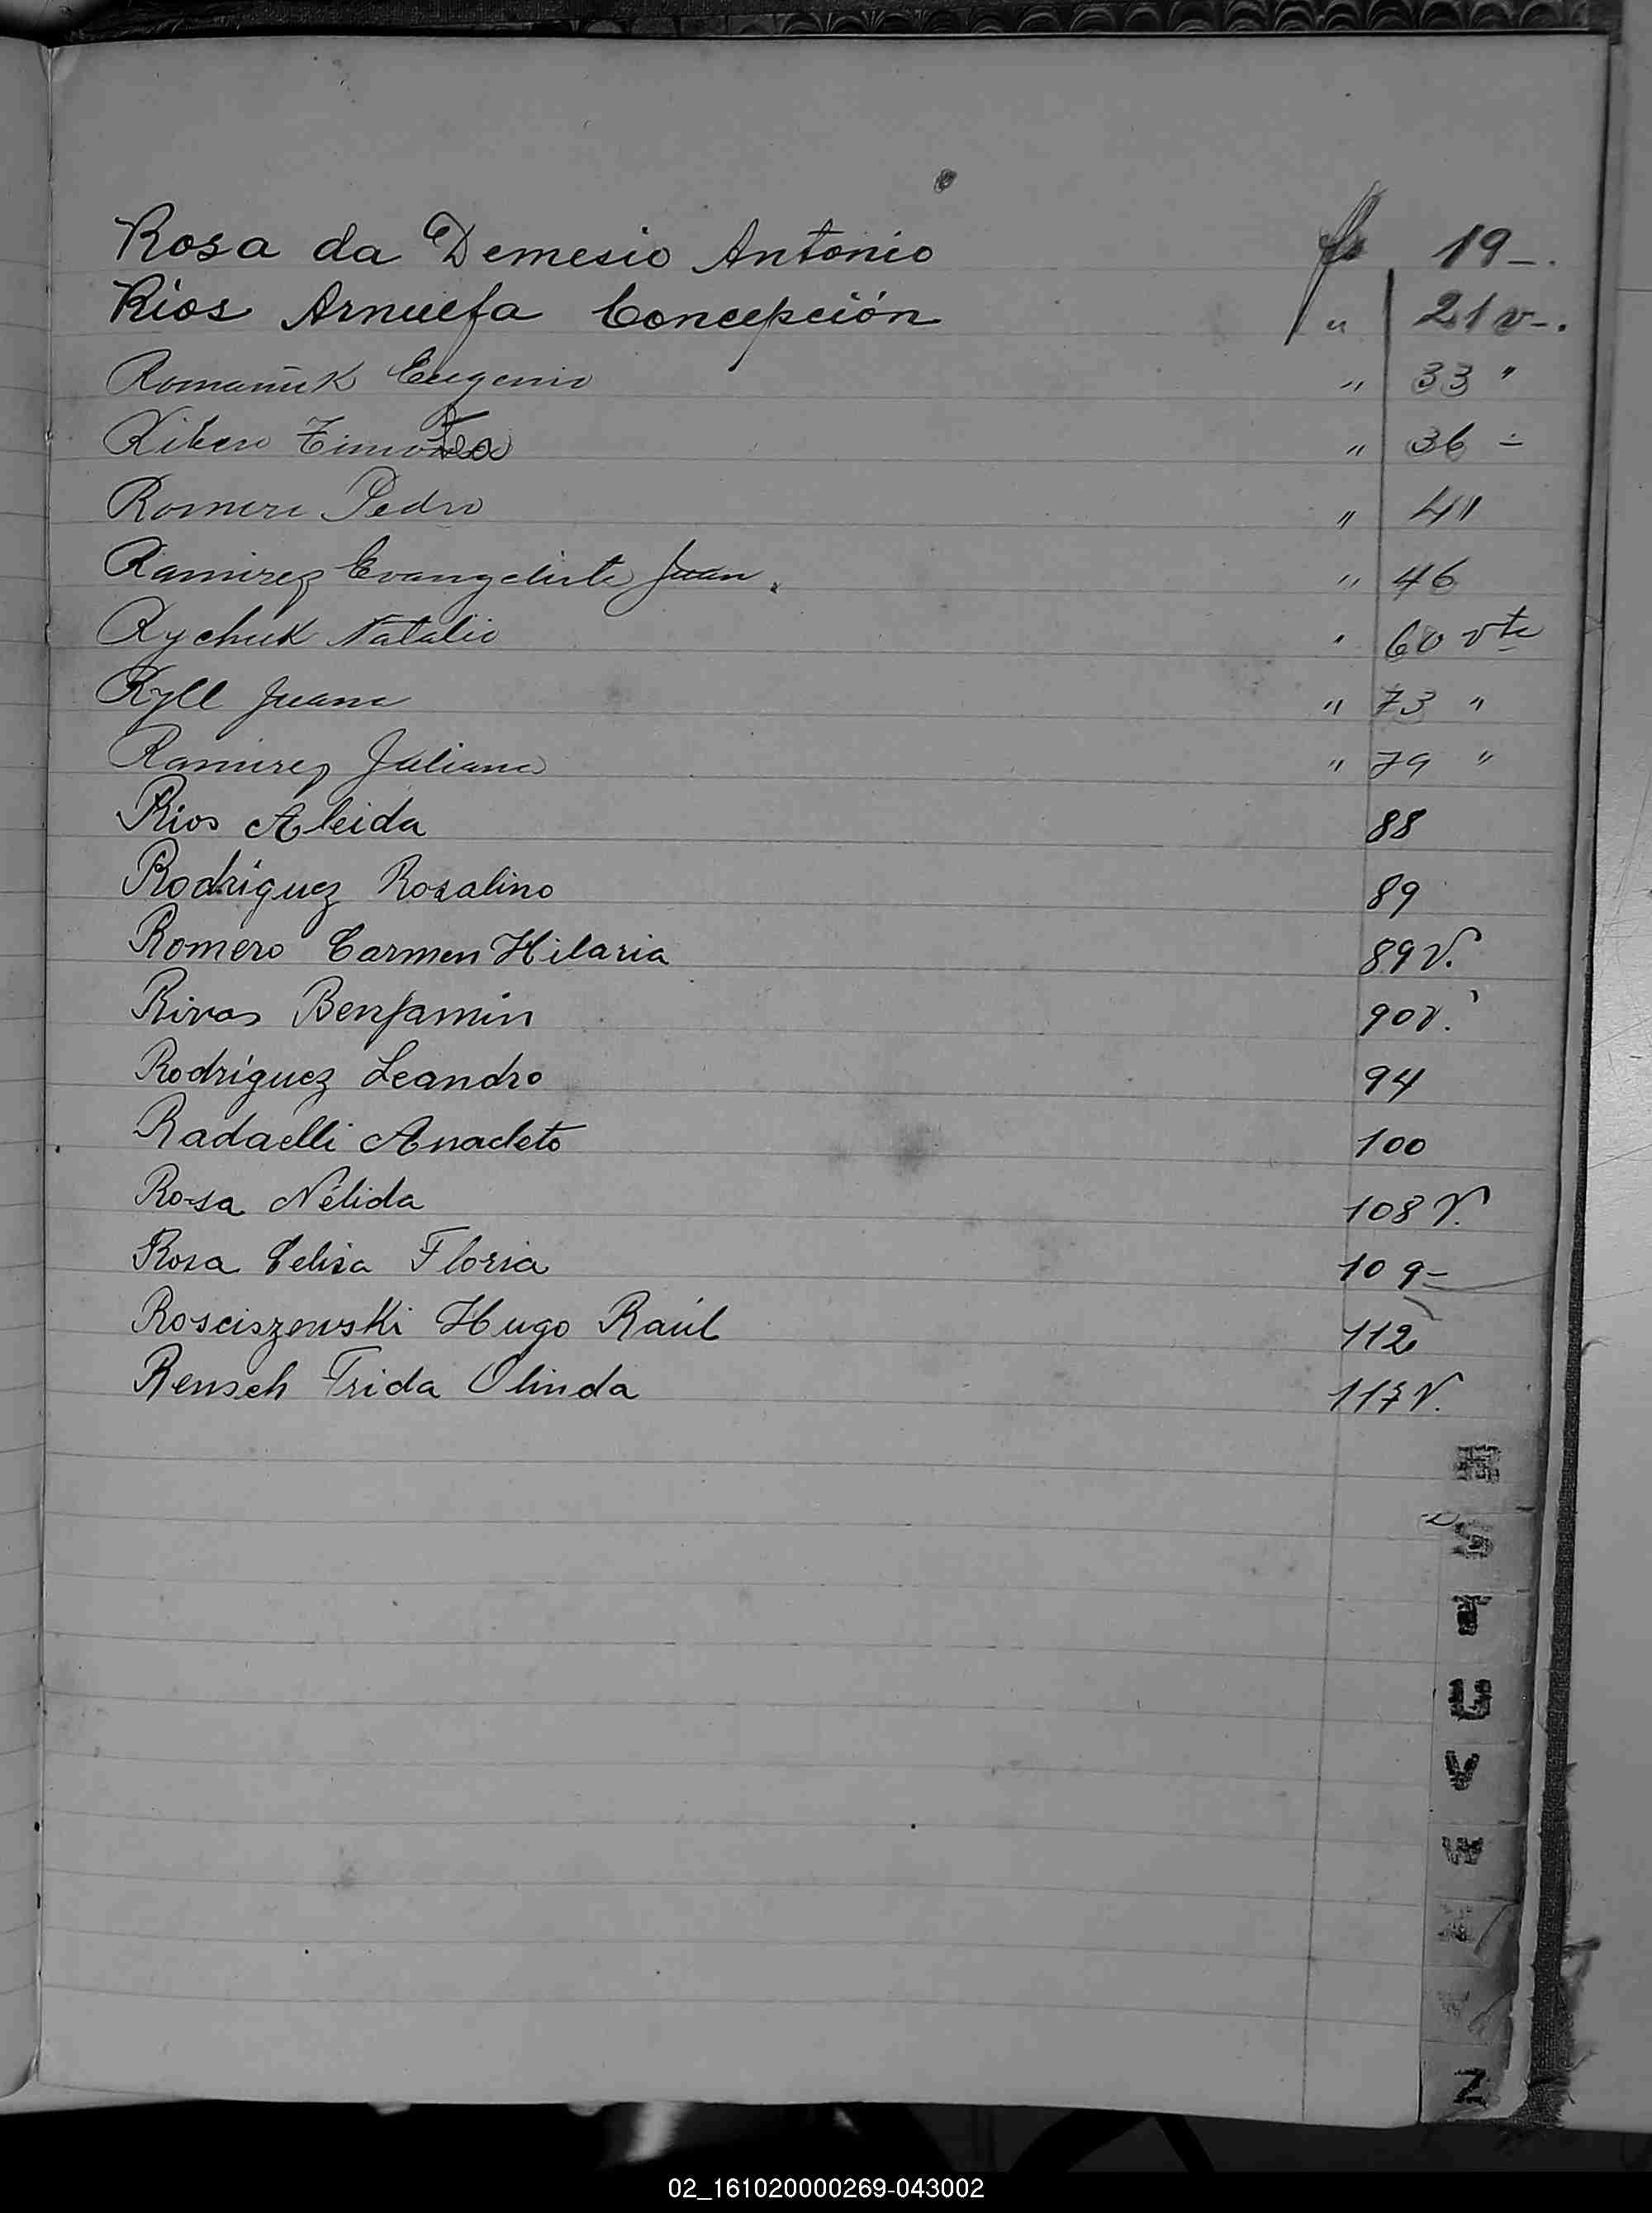 Rosa da Demesio Antonio fs 19-.
Ríos Arnulfa Concepción " 21v-.
Romaniuk Eugenio " 33 "
Ribero Timotea " 36 -
Romero Pedro " 41
Ramirez Evangelista Juan. " 46
Rychuk Natalio " 60 vta
Ryll Juana " 73 "
Ramirez Juliana " 79 "
Ríos Aleida 88
Rodríguez Rosalino 89
Romero Carmen Hilaria 89 v.
Rivas Benjamín 90 v.
Rodríguez Leandro 94
Radaelli Anacleto 100
Rosa Nélida 108 v.
Rosa Celisa Floria 109-
Rosciszewski Hugo Raúl 112
Rensch Frida Olinda 117 v.
R
S
T
U
V
W
Z
02_161020000269-043002